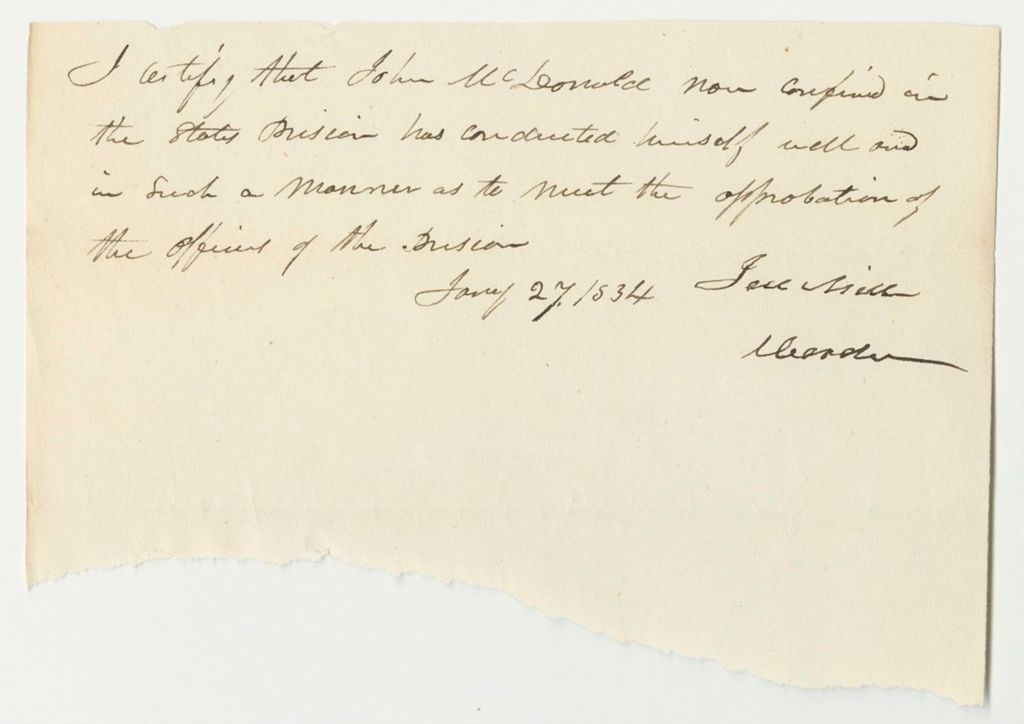 I certify that John McDonald now confined in
the States Prision has conducted himself well and
in such a manner as to meet the approbation of
the officers of the Prision
Jany 27, 1834 Joel Miller
Warden